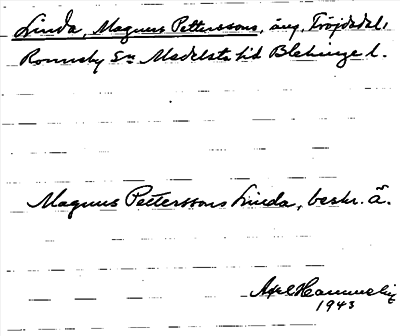 Linda, Magnus Petterssons, äng, Fröjdadal,
Ronneby Sn Medelsta hd Blekinge l.
Magnus Petterssons Linda, beskr. ä.
Axel Hammerling
1943